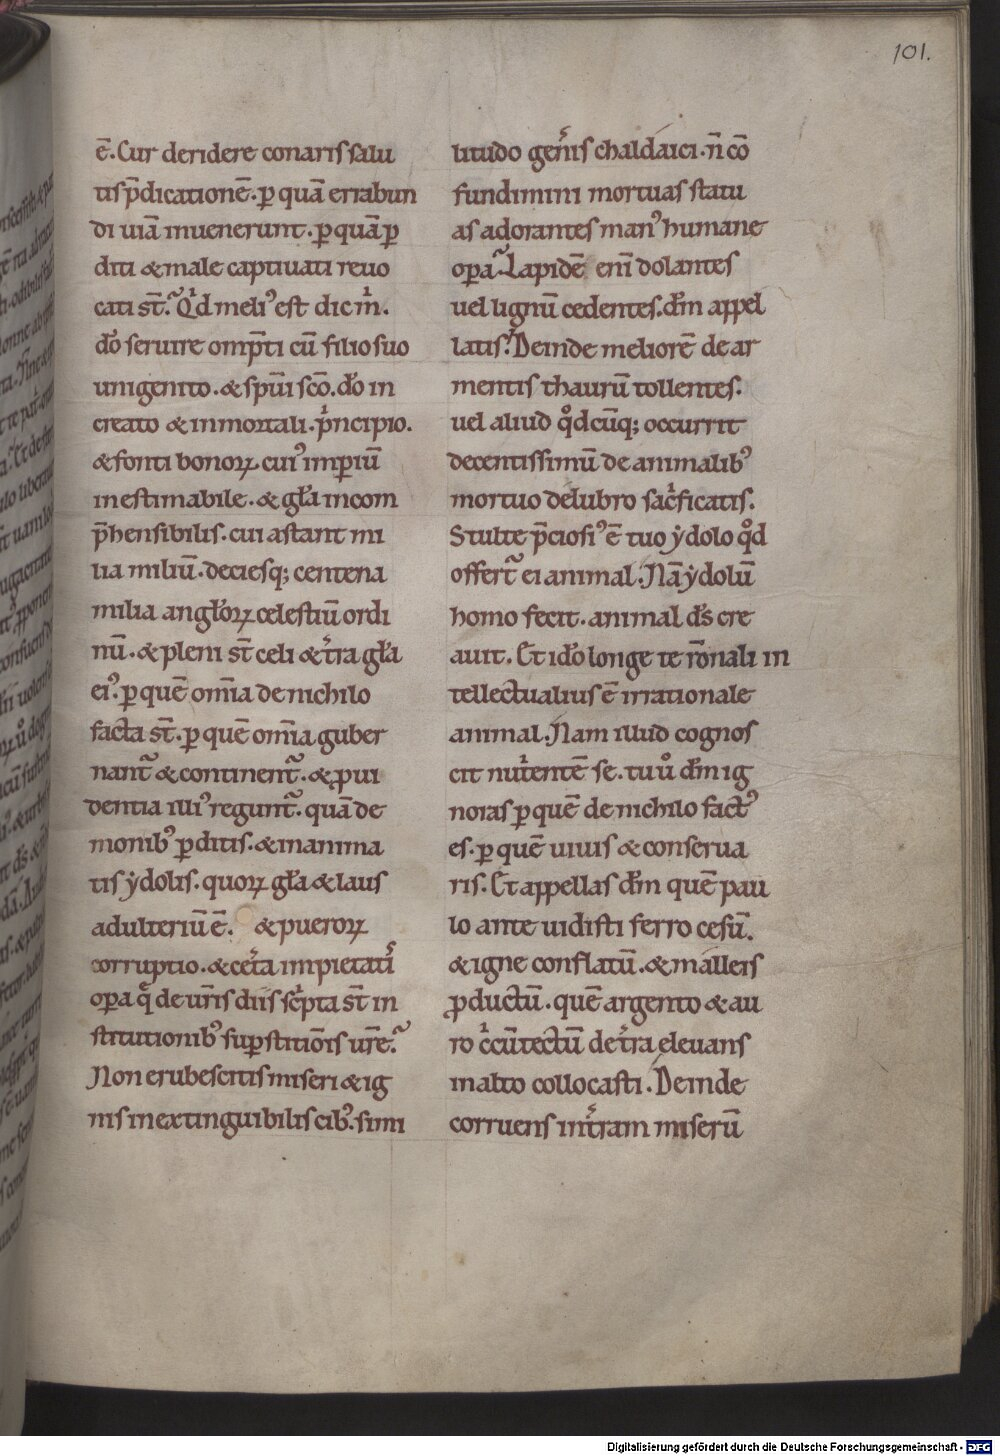 101.
ē. Cur deridere conaris salu
tis p̄dicationē. ꝑ quā errabun
di uiā inuenerunt. ꝑ quā ꝑ
diti & male captiuati reuo
cati st̄. Qͥd meliꝰ est dic m̄.
dō seruire omp̄ti cū filio suo
unigenito. & spūi scō. dō in
creato & inmortali. pͥncipio.
& fonti bonoꝝ cuiꝰ imꝑiū
inestimabile. & gła incom
p̄hensibilis. cui astant mi
lia miliū. deciesq; centena
milia angłoꝝ celestiū ordi
nū. & pleni st̄ celi & t̄ra gła
eiꝰ. ꝑ quē om̄ia de nichilo
facta st̄. ꝑ quē om̄ia guber
nant᷑ & continent᷑. & ꝓui
dentia illiꝰ regunt᷑. quā de
monibꝰ ꝑditis. & inanima
tis ẏdolis. quoꝝ gła & laus
adulteriū ē. & pueroꝝ
corruptio. & cet̄a impietatū
oꝑa q̄ de ur̄is diis sc̄pta st̄ in
stitutionibꝰ suꝑstitiōis ur̄e.
Non erubescitis miseri & ig
nis inextinguibilis cibꝰ. simi
litudo gen̄is chaldaici. n̄ cō
fundimini mortuas statu
as adorantes manꝰ humane
oꝑa. Lapidē enī dolantes
uel lignū cedentes. dm̄ appel
latis. Deinde meliorē de ar
mentis thaurū tollentes.
uel aliud qͦdcūq; occurrit
decentissimū de animalibꝰ
mortuo delubro sac̄ficatis.
Stulte p̄ciosiꝰ ē tuo ẏdolo qͦd
offert᷑ ei animal. Nā ẏdolū
homo fecit. animal ds̄ cre
auit. Et idō longe te r̄onali in
tellectualius ē irrationale
animal. Nam illud cognos
cit nut̄entē se. tu ū dm̄ ig
noras ꝑ quē de nichilo factꝰ
es. ꝑ quē uiuis & conserua
ris. Et appellas dm̄ quē pau
lo ante uidisti ferro cesū.
& igne conflatū. & malleis
ꝓductū. quē argento & au
ro cͥcūtectū de t̄ra eleuans
in alto collocasti. Deinde
corruens int̄ram miserū
Digitalisierung gefördert durch die Deutsche Forschungsgemeinschaft - DFG